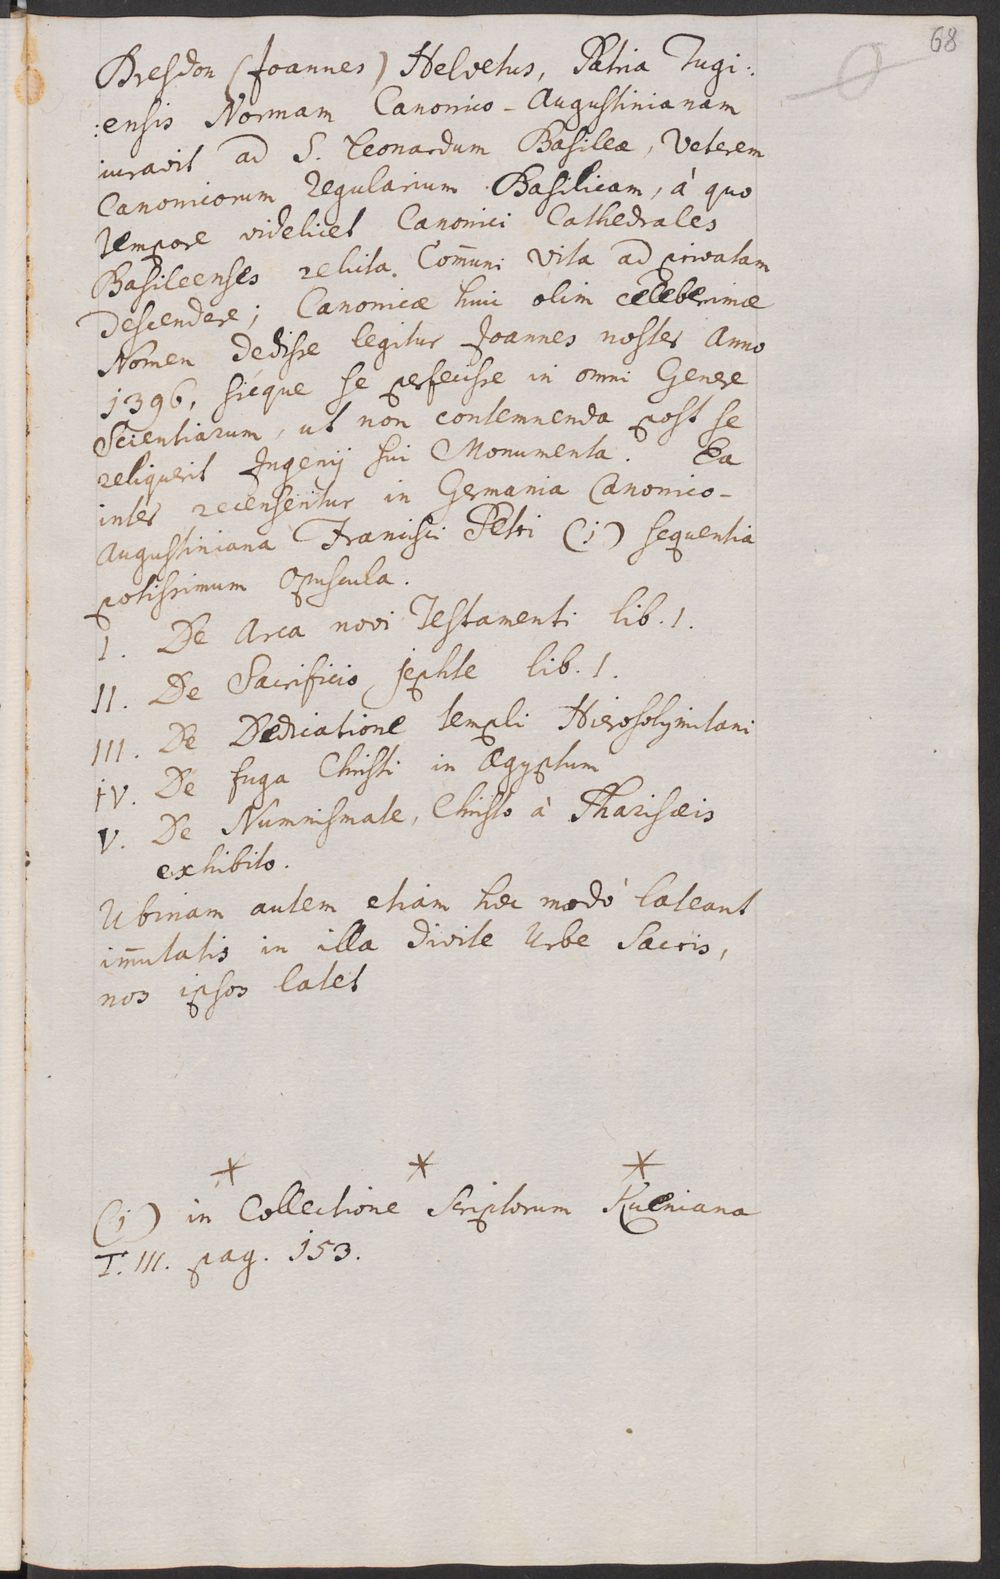 68
Bresdon (Joannes) Helvetus, Patria Tugi:
:ensis Normam Canonico-Augustinianam
iuravit ad S. Leonardum Basileæ, Veterem
Canonicorum Regularium Basilicam, à quo
tempore videlicet Canonici Cathedrales
Basileenses relicta. Com̄uni vita ad privatam
descendere; Canonicæ huic olim celeberimæ
Nomen dedisse legitur Joannes noster Anno
1396, sicque se perfecisse in omni Genere
Scientiarum, ut non contemnenda post se
reliquerit Ingenij sui Monumenta. Ea
inter recensentur in Germania Canonico-
Augustiniana Francisci Petri (i) sequentia
potissimum opuscula.
I. De Arca novi Testamenti lib. 1.
II. De Sacrificio jephte lib. 1.
III. De Dedicatione templi Hierosolymitani
IV. De fuga Christi in Ægyptum
V. De Numnismate, Christo à Pharisæis
exhibito.
Ubinam autem etiam hæc modò lateant
im̄utatis in illa divite Urbe Sacris,
nos ipsos latet
* * *
(i) in Collectione Scriptorum Kueniana
T. III. pag. 153.